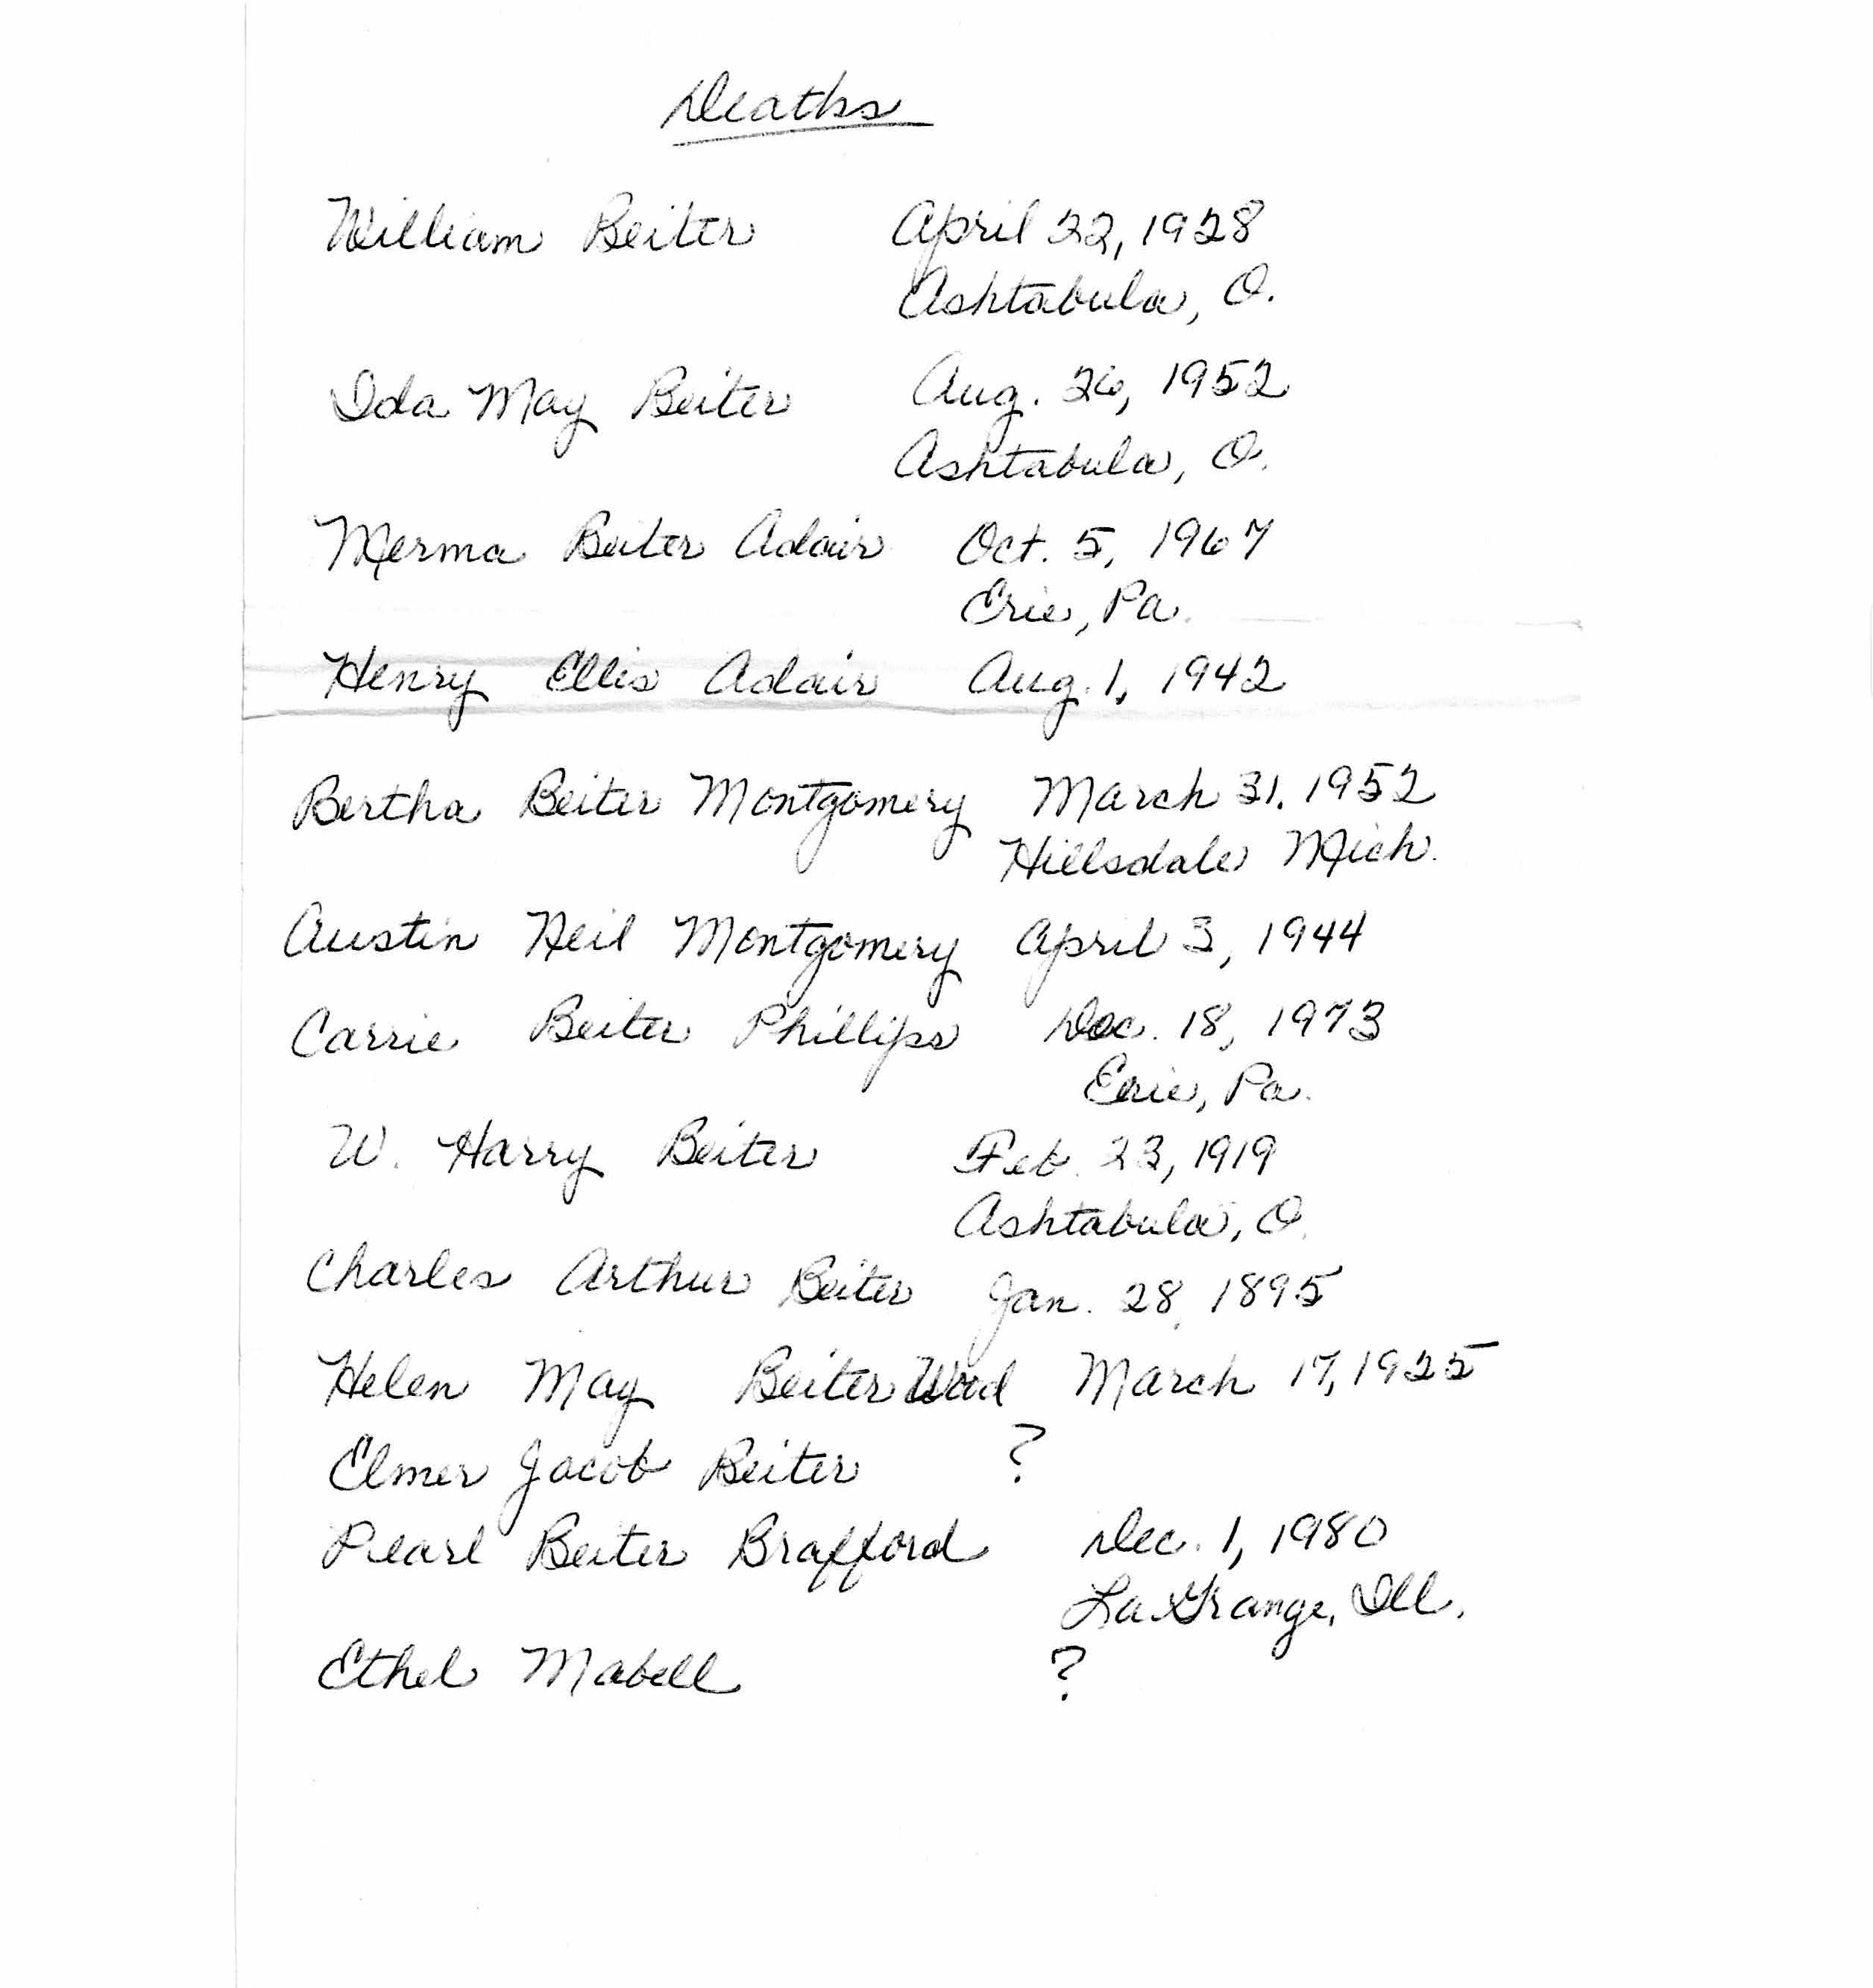 Deaths
William Beiter April 22, 1928
Ashtabula, O.
Ida May Beiter Aug. 26, 1952
Ashtabula, O.
Merma Beiter Adair Oct. 5, 1967
Erie, Pa.
Henry Ellis Adair Aug. 1, 1942
Bertha Beiter Montgomery March 31. 1952
Hillsdale Mich.
Austin Neil Montgomery April 3, 1944
Carrie Beiter Phillips Dec. 18, 1973
Erie, Pa.
W. Harry Beiter Feb. 23, 1919
Ashtabula, O.
Charles Arthur Beiter Jan. 28, 1895
Helen May Beiter Wood March 17, 1925
Elmer Jacob Beiter ?
Pearl Beiter Brafford Dec. 1, 1980
La Grange, Ill.
Ethel Mabell ?